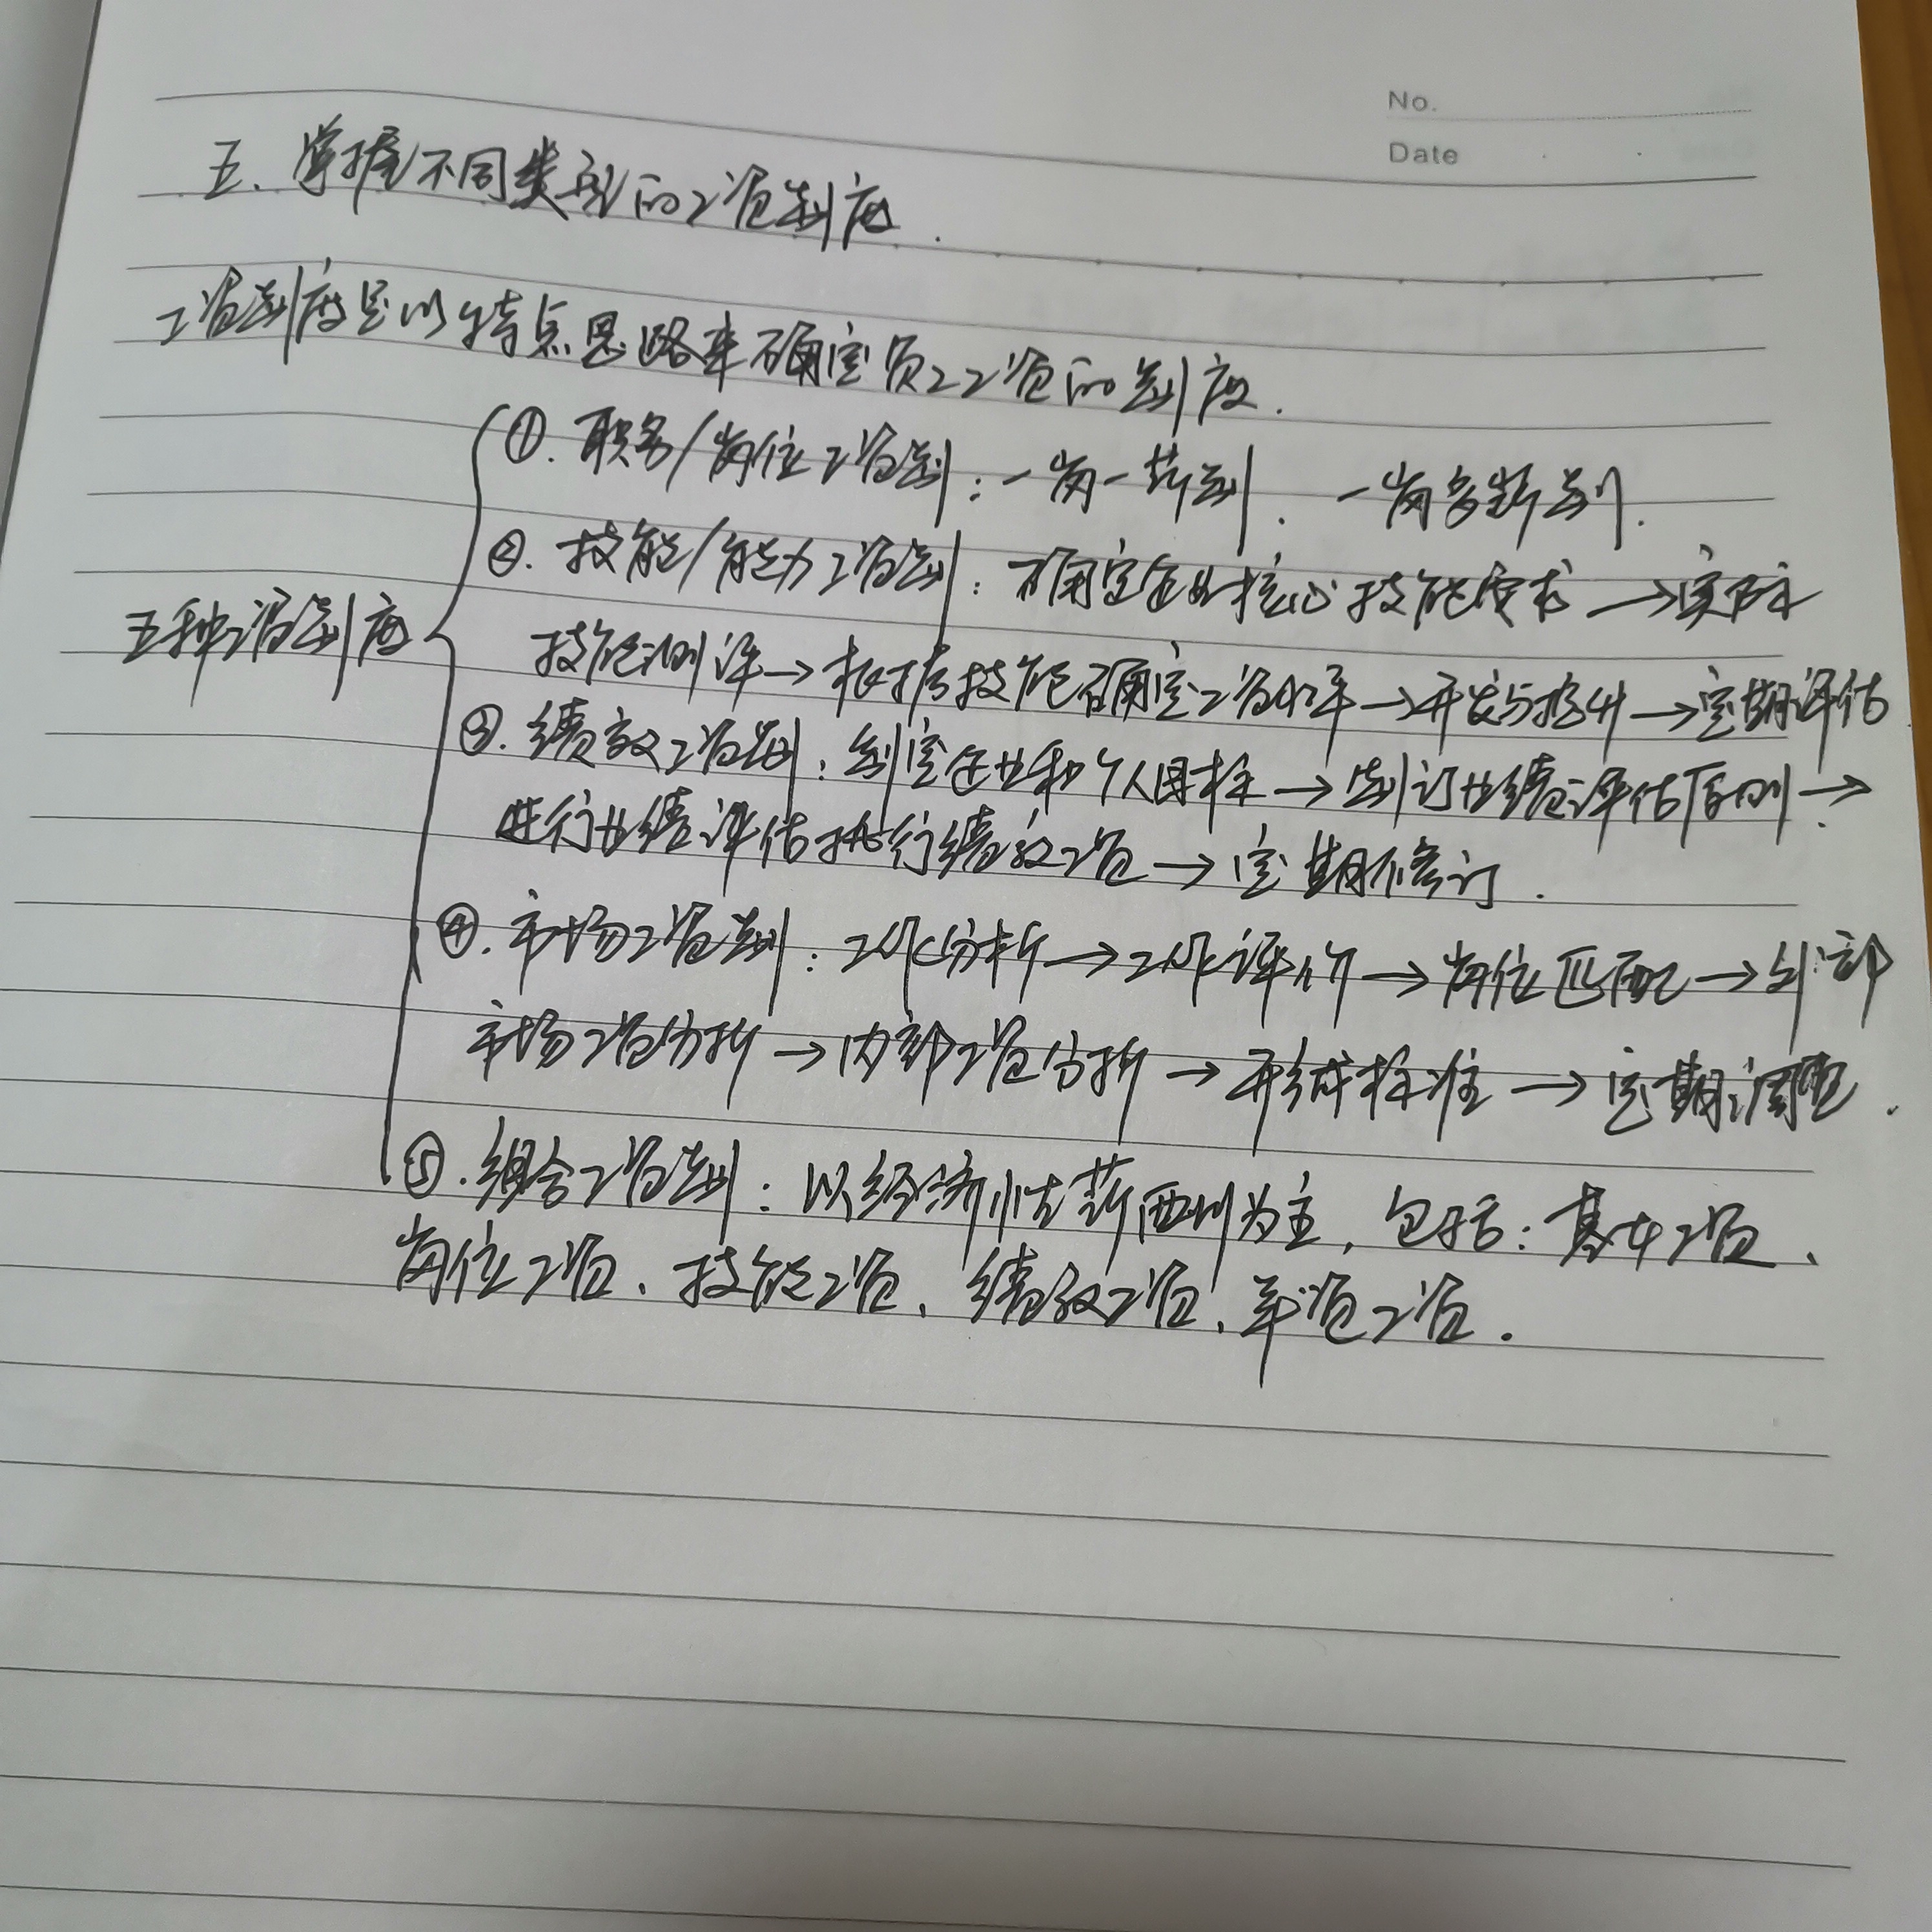 No.
Date
五、掌握不同类型的工资制度.
工资制度是以特点思路来确定员工工资的制度.
五种工资制度
①. 职务/岗位工资制:一岗一薪制. 一岗多薪制.
②. 技能/能力工资制:确定企业核心技能要求→实际
技能测评→根据技能确定工资水平→开发与提升→定期评估
③. 绩效工资制:制定企业和个人目标→制订业绩评估原则→
进行业绩评估执行绩效工资→定期修订.
④. 市场工资制:工作分析→工作评价→岗位匹配→外部
市场工资分析→内部工资分析→形成标准→定期调整.
⑤. 组合工资制:以经济性薪酬为主,包括:基本工资、
岗位工资、技能工资、绩效工资、年资工资.